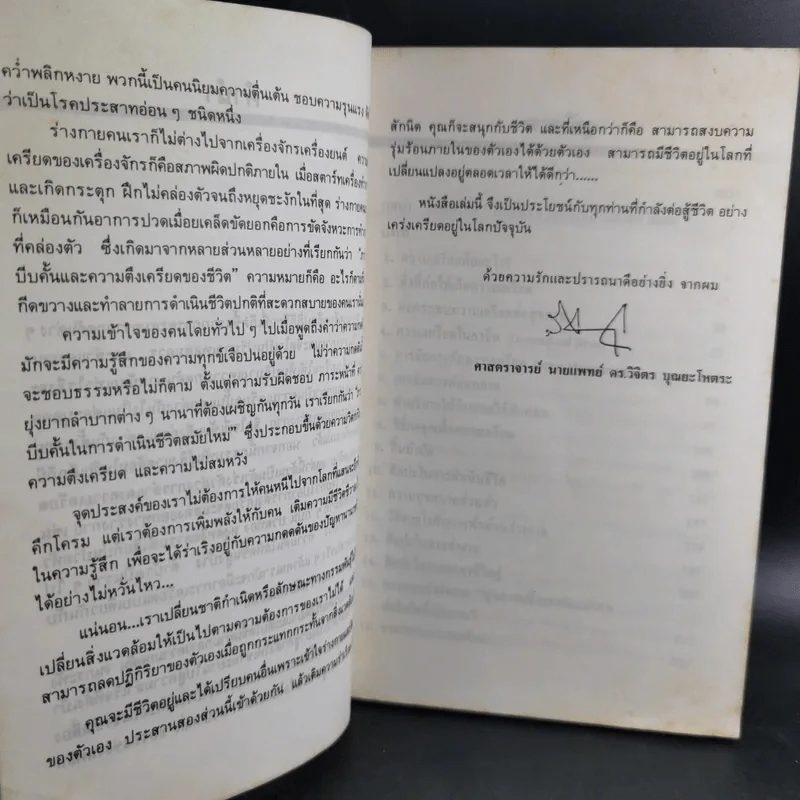 คว่ำพลิกหงาย พวกนี้เป็นคนนิยมความตื่นเต้น ชอบความรุนแรง
ว่าเป็นโรคประสาทอ่อน ๆ ชนิดหนึ่ง
ร่างกายคนเราก็ไม่ต่างไปจากเครื่องจักรเครื่องยนต์
เครียดของเครื่องจักรก็คือสภาพผิดปกติภายใน เมื่อสตาร์ทเครื่อง
และเกิดกระตุก ฝืกไม่คล่องตัวจนถึงหยุดชะงักในที่สุด ร่างกายคน
ก็เหมือนกันอาการปวดเมื่อยเคล็ดขัดยอกคือการขัดจังหวะการ
ที่คล่องตัว ซึ่งเกิดมาจากหลายส่วนหลายอย่างที่เรียกกันว่า
บีบคั้นและความตึงเครียดของชีวิต" ความหมายก็คือ อะไรก็ตาม
กีดขวางและทำลายการดำเนินชีวิตปกติที่สะดวกสบายของคนเรา
ความเข้าใจของคนโดยทั่วไป ๆ ไปเมื่อพูดถึงคำว่าความ
มักจะมีความรู้สึกของความทุกข์เจือปนอยู่ด้วย ไม่ว่าความกดดัน
จะชอบธรรมหรือไม่ก็ตาม ตั้งแต่ความรับผิดชอบ ภาระหน้าที่
ยุ่งยากลำบากต่าง ๆ นานาที่ต้องเผชิญกันทุกวัน เราเรียกกันว่า
บีบคั้นในการดำเนินชีวิตสมัยใหม่" ซึ่งประกอบขึ้นด้วยความวิตก
ความตึงเครียด และความไม่สมหวัง
จุดประสงค์ของเราไม่ต้องการให้คนหนีไปจากโลกที่แสนจะ
คึกโครม แต่เราต้องการเพิ่มพลังให้กับคน เติมความมีชีวิต
ในความรู้สึก เพื่อจะได้ร่าเริงอยู่กับความกดดันของปัญหานานา
ได้อย่างไม่หวั่นไหว...
แน่นอน...เราเปลี่ยนชาติกำเนิดหรือลักษณะทางกรรมพันธุ์
เปลี่ยนสิ่งแวดล้อมให้เป็นไปตามความต้องการของเราไม่ได้
สามารถลดปฏิกิริยาของตัวเองเมื่อถูกกระแทกกระทั้นจากสิ่งแวดล้อม
คุณจะมีชีวิตอยู่และได้เปรียบคนอื่นเพราะเข้าใจร่างกาย
ของตัวเอง ประสานสองส่วนนี้เข้าด้วยกัน แล้วเติมความ
สักนิด คุณก็จะสนุกกับชีวิต และที่เหนือกว่าก็คือ สามารถสงบความ
รุ่มร้อนภายในของตัวเองได้ด้วยตัวเอง สามารถมีชีวิตอยู่ในโลกที่
เปลี่ยนแปลงอยู่ตลอดเวลาให้ได้ดีกว่า......
หนังสือเล่มนี้ จึงเป็นประโยชน์กับทุกท่านที่กำลังต่อสู้ชีวิต อย่าง
เคร่งเครียดอยู่ในโลกปัจจุบัน
ด้วยความรักและปรารถนาดีอย่างยิ่ง จากผม
ศาสตราจารย์ นายแพทย์ ดร.วิจิตร บุณยะโหตระ